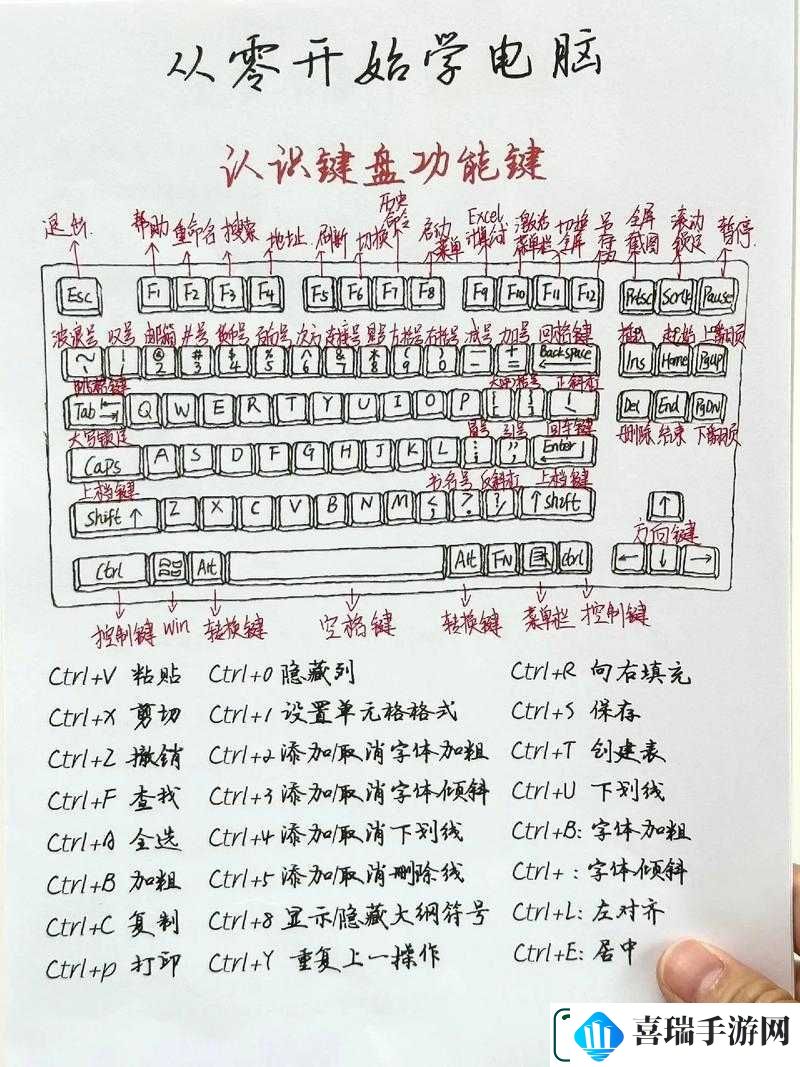 从零开始学电脑
认识键盘功能键
退出 帮助 重命名 搜索 地址 刷新 切换 历史命令 启动菜单 Excel计算公式 激活菜单栏 切换全屏 另存为 全屏截图 滚动锁定 暂停
Esc F1 F2 F3 F4 F5 F6 F7 F8 F9 F10 F11 F12 Prtsc Scrlk Pause
波浪号 叹号 邮箱 井号 货币号 百分号 次方 连接号 星号 左括号 右括号 减号 加号 回格键 插入 起始 上翻页
~ ` ! 1 @ 2 # 3 $ 4 % 5 ^ 6 & 7 * 8 ( 9 ) 0 — - + = Backspace Ins Home PgUp
跳格键 大中括号 正斜杠
Tab Q W E R T Y U I O P { [ } ] Del End PgDn
大写锁定 冒号 引号 回车键 删除 结束 下翻页
Caps A S D F G H J K L : ; " ' Enter
上档键 书名号 反斜杠 上档键
Shift ↑ Z X C V B N M < ? ↑ Shift ↑
方向键
Ctrl Alt Alt FN Ctrl ← ↓ →
控制键 Win 转换键 空格键 转换键 菜单栏 控制键
Ctrl+V 粘贴 Ctrl+0 隐藏列 Ctrl+R 向右填充
Ctrl+X 剪切 Ctrl+1 设置单元格格式 Ctrl+S 保存
Ctrl+Z 撤销 Ctrl+2 添加/取消字体加粗 Ctrl+T 创建表
Ctrl+F 查找 Ctrl+3 添加/取消字体倾斜 Ctrl+U 下划线
Ctrl+A 全选 Ctrl+4 添加/取消下划线 Ctrl+B: 字体加粗
Ctrl+B 加粗 Ctrl+5 添加/取消删除线 Ctrl+ : 字体倾斜
Ctrl+C 复制 Ctrl+8 显示/隐藏大纲符号 Ctrl+L: 左对齐
Ctrl+p 打印 Ctrl+Y 重复上一操作 Ctrl+E: 居中
喜瑞手游网